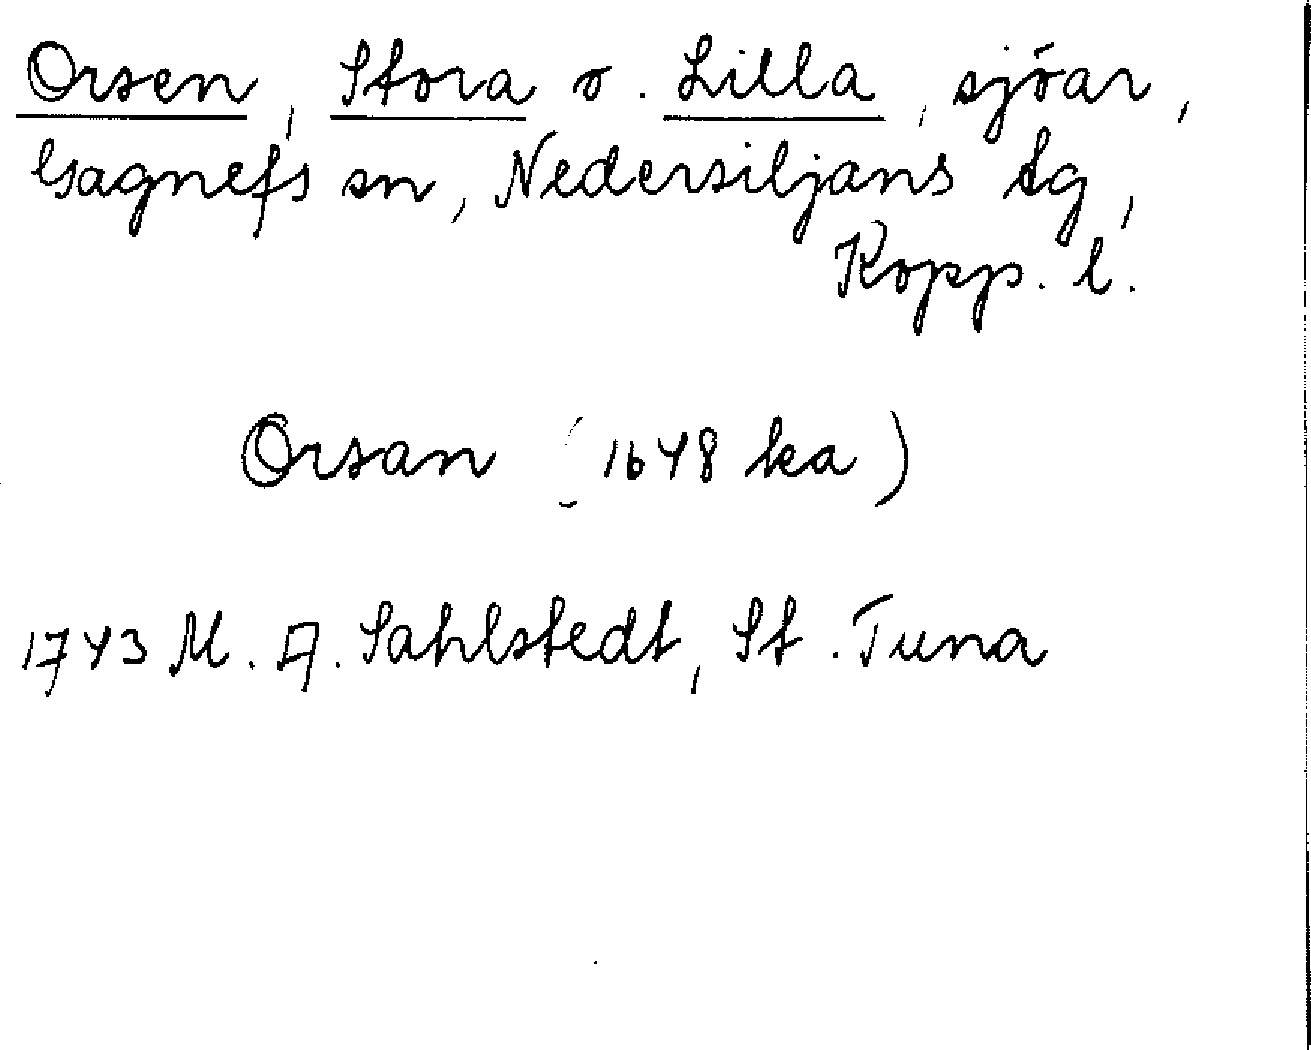 Orsen, Stora o. Lilla, sjöar,
Gagnefs sn, Nedersiljans tg,
Kopp. l.
Orsan (1648 ka)
1743 M. A. Sahlstedt, St. Tuna